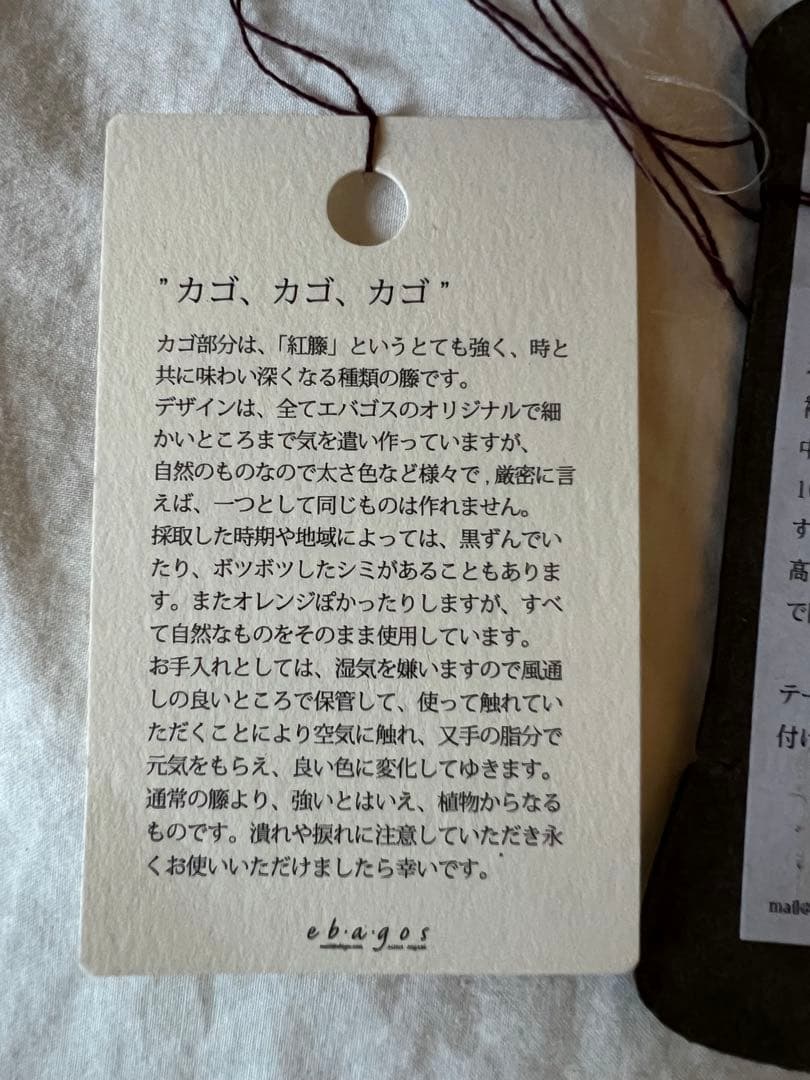 ” カゴ、カゴ、カゴ ”
カゴ部分は、「紅籐」というとても強く、時と
共に味わい深くなる種類の籐です。
デザインは、全てエバゴスのオリジナルで細
かいところまで気を遣い作っていますが、
自然のものなので太さ色など様々で , 厳密に言
えば、一つとして同じものは作れません。
採取した時期や地域によっては、黒ずんでい
たり、ボツボツしたシミがあることもありま
す。またオレンジぽかったりしますが、すべ
て自然なものをそのまま使用しています。
お手入れとしては、湿気を嫌いますので風通
しの良いところで保管して、使って触れてい
ただくことにより空気に触れ、又手の脂分で
元気をもらえ、良い色に変化してゆきます。
通常の籐より、強いとはいえ、植物からなる
ものです。潰れや捩れに注意していただき永
くお使いいただけましたら幸いです。
e・b・a・g・o・s
す
高
で
テー
付け